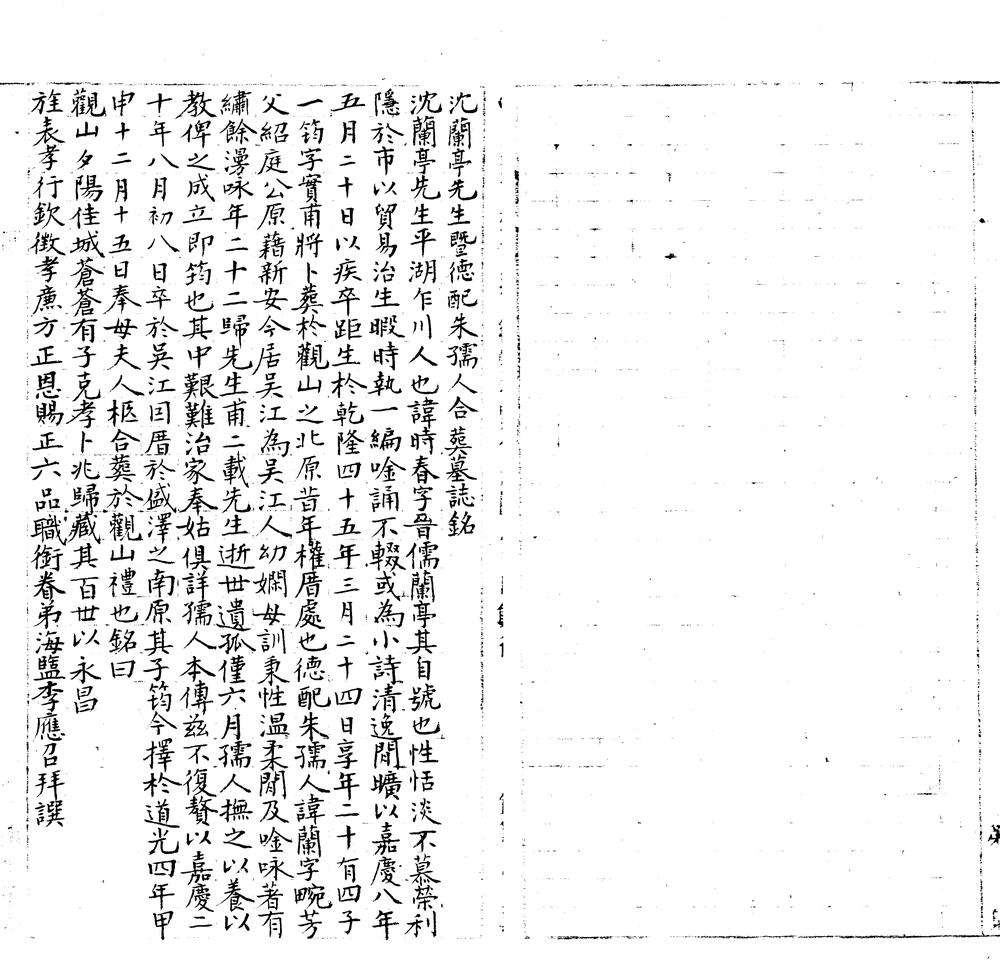 沈蘭亭先生暨德配朱孺人合葬墓誌銘
沈蘭亭先生平湖乍川人也諱時春字晉儒蘭亭其自號也性恬淡不慕榮利
隱於市以貿易治生暇時執一編唫誦不輟或為小詩清逸閒曠以嘉慶八年
五月二十日以疾卒距生於乾隆四十五年三月二十四日享年二十有四子
一筠字實甫將卜葬於觀山之北原昔年權厝處也德配朱孺人諱蘭字畹芳
父紹庭公原藉新安今居吳江為吳江人幼嫻母訓秉性温柔閒及唫咏著有
繡餘漫咏年二十二歸先生甫二載先生逝世遺孤僅六月孺人撫之以養以
教俾之成立即筠也其中艱難治家奉姑俱詳孺人本傳兹不復贅以嘉慶二
十年八月初八日卒於吳江因厝於盛澤之南原其子筠今擇於道光四年甲
申十二月十五日奉母夫人柩合葬於觀山禮也銘曰
觀山夕陽佳城蒼蒼有子克孝卜兆歸藏其百世以永昌
旌表孝行欽徵孝廉方正恩賜正六品職銜眷弟海鹽李應召拜譔